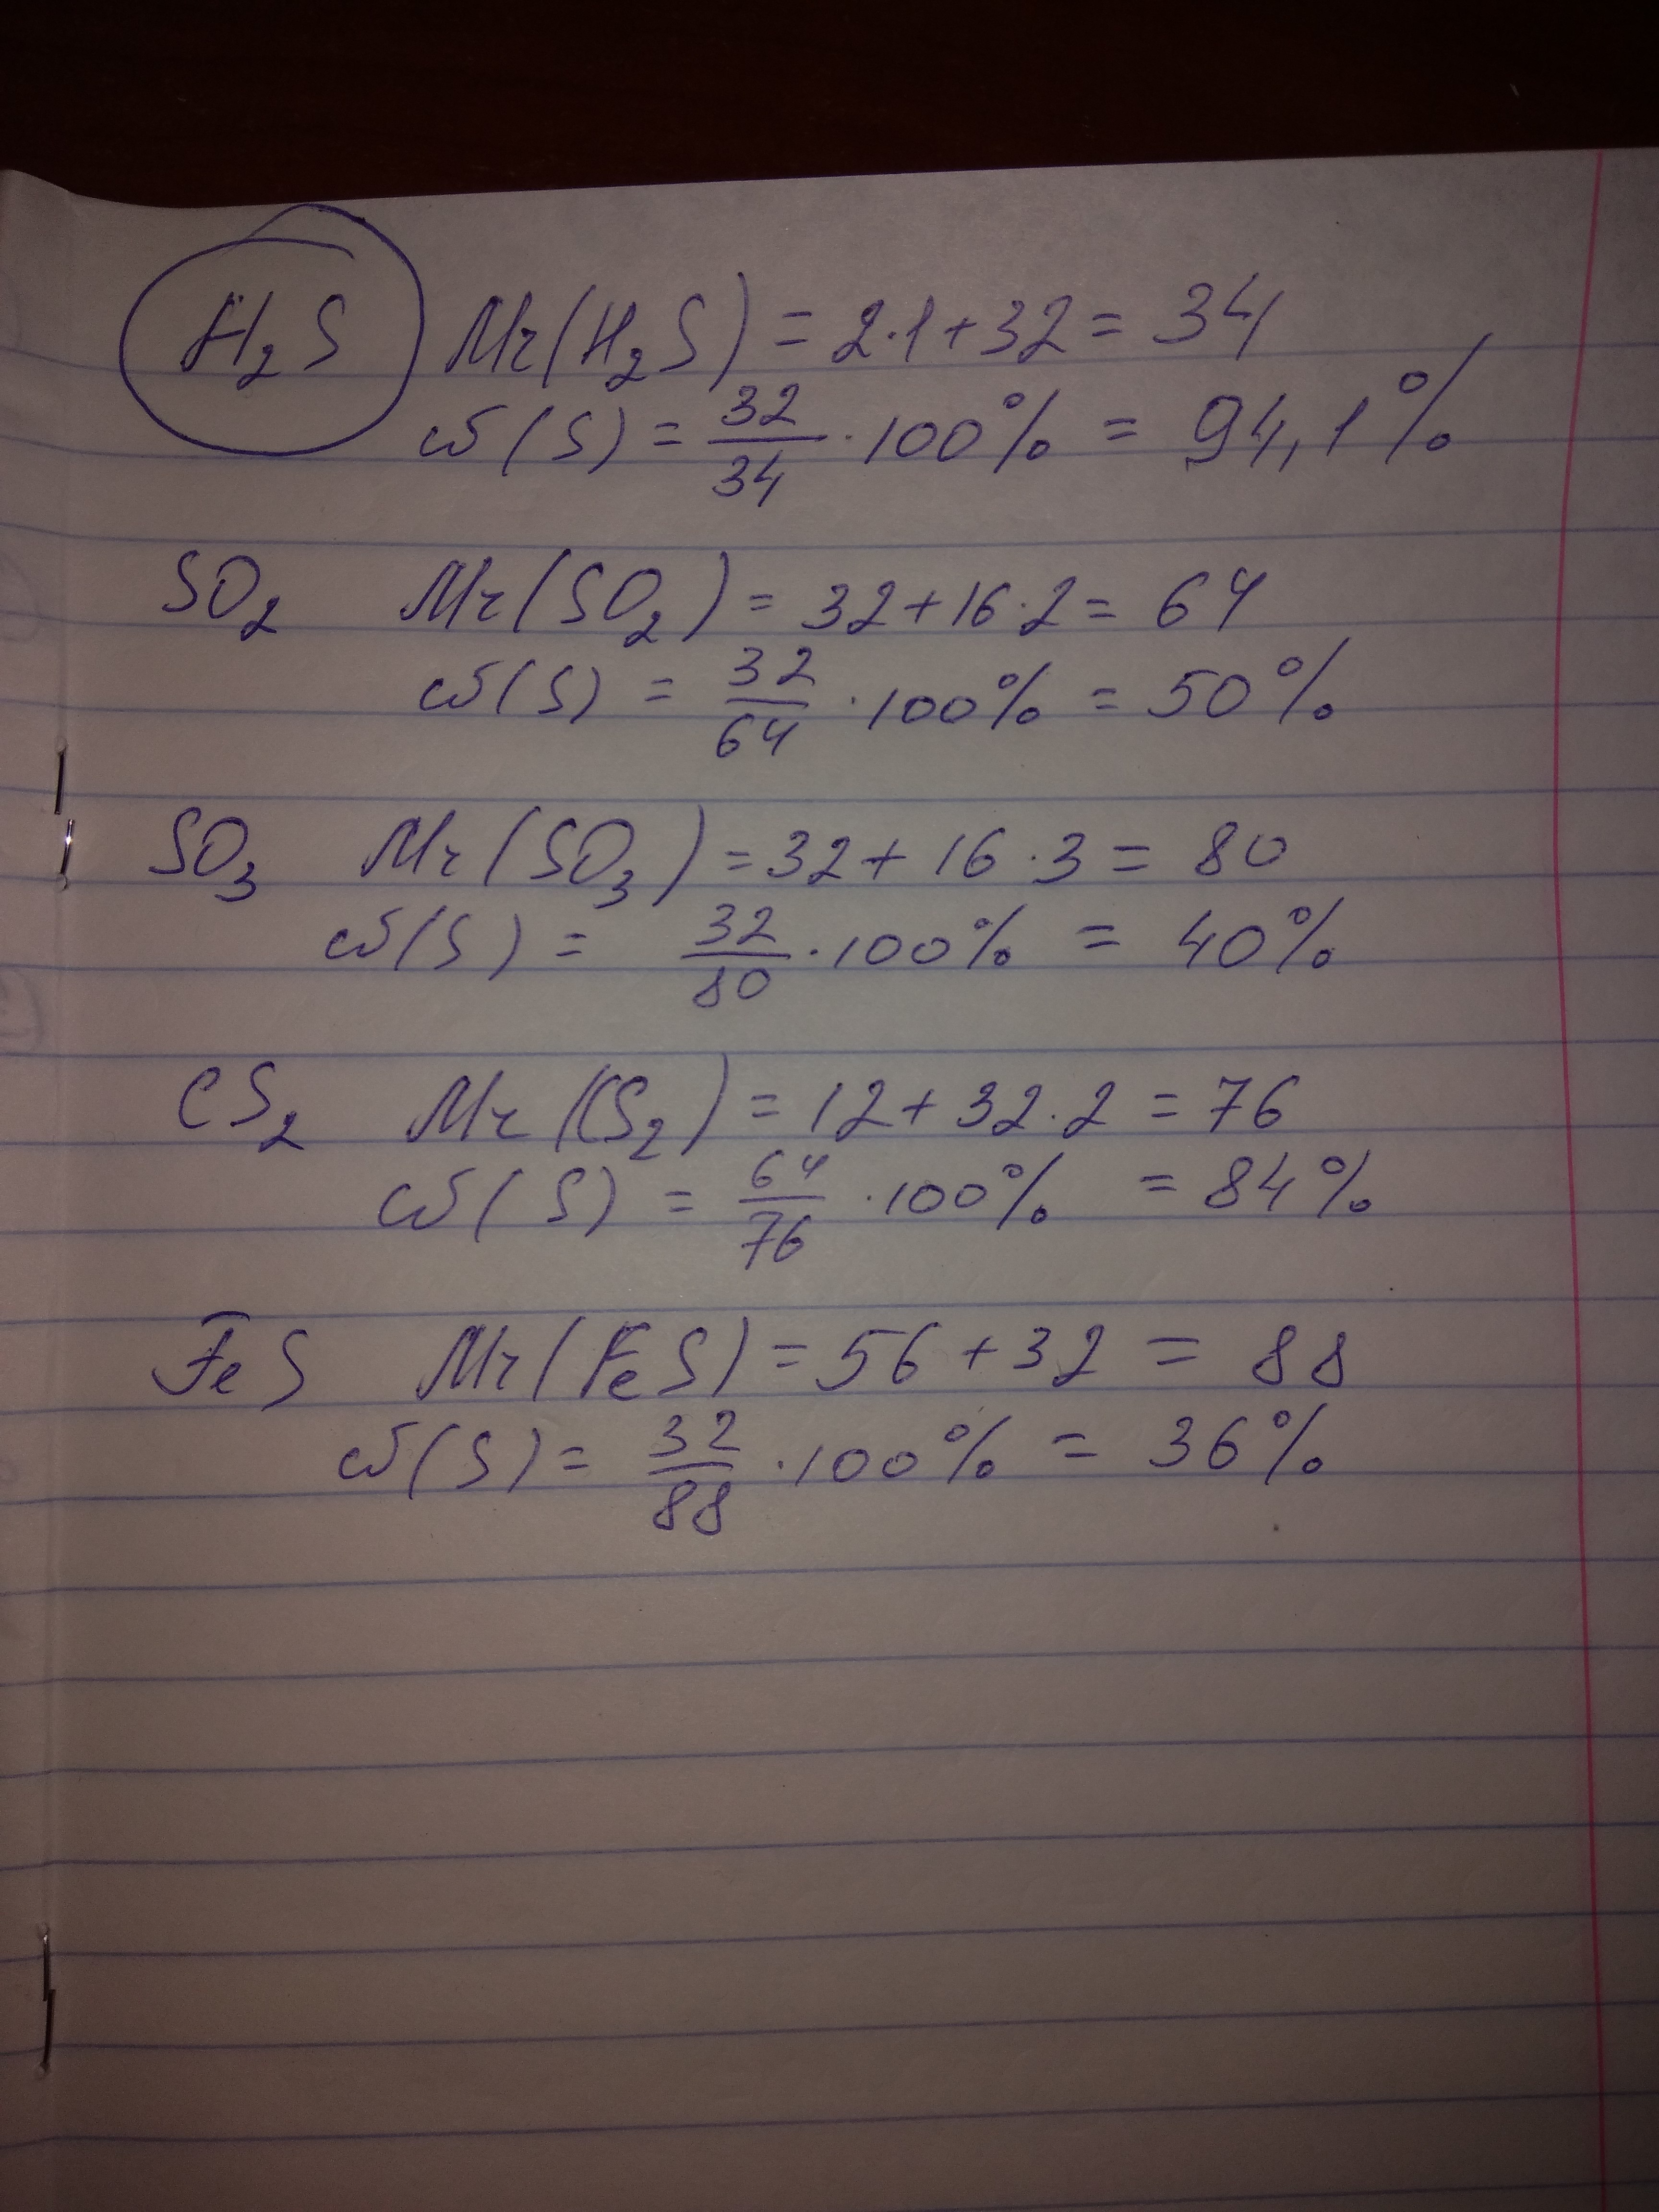 H₂S Mr(H₂S) = 2·1+32 = 34
ω(S) = 32/34 · 100% = 94,1%
SO₂ Mr(SO₂) = 32+16·2 = 64
ω(S) = 32/64 · 100% = 50%
SO₃ Mr(SO₃) = 32+16·3 = 80
ω(S) = 32/80 · 100% = 40%
CS₂ Mr(CS₂) = 12+32·2 = 76
ω(S) = 64/76 · 100% = 84%
FeS Mr(FeS) = 56+32 = 88
ω(S) = 32/88 · 100% = 36%